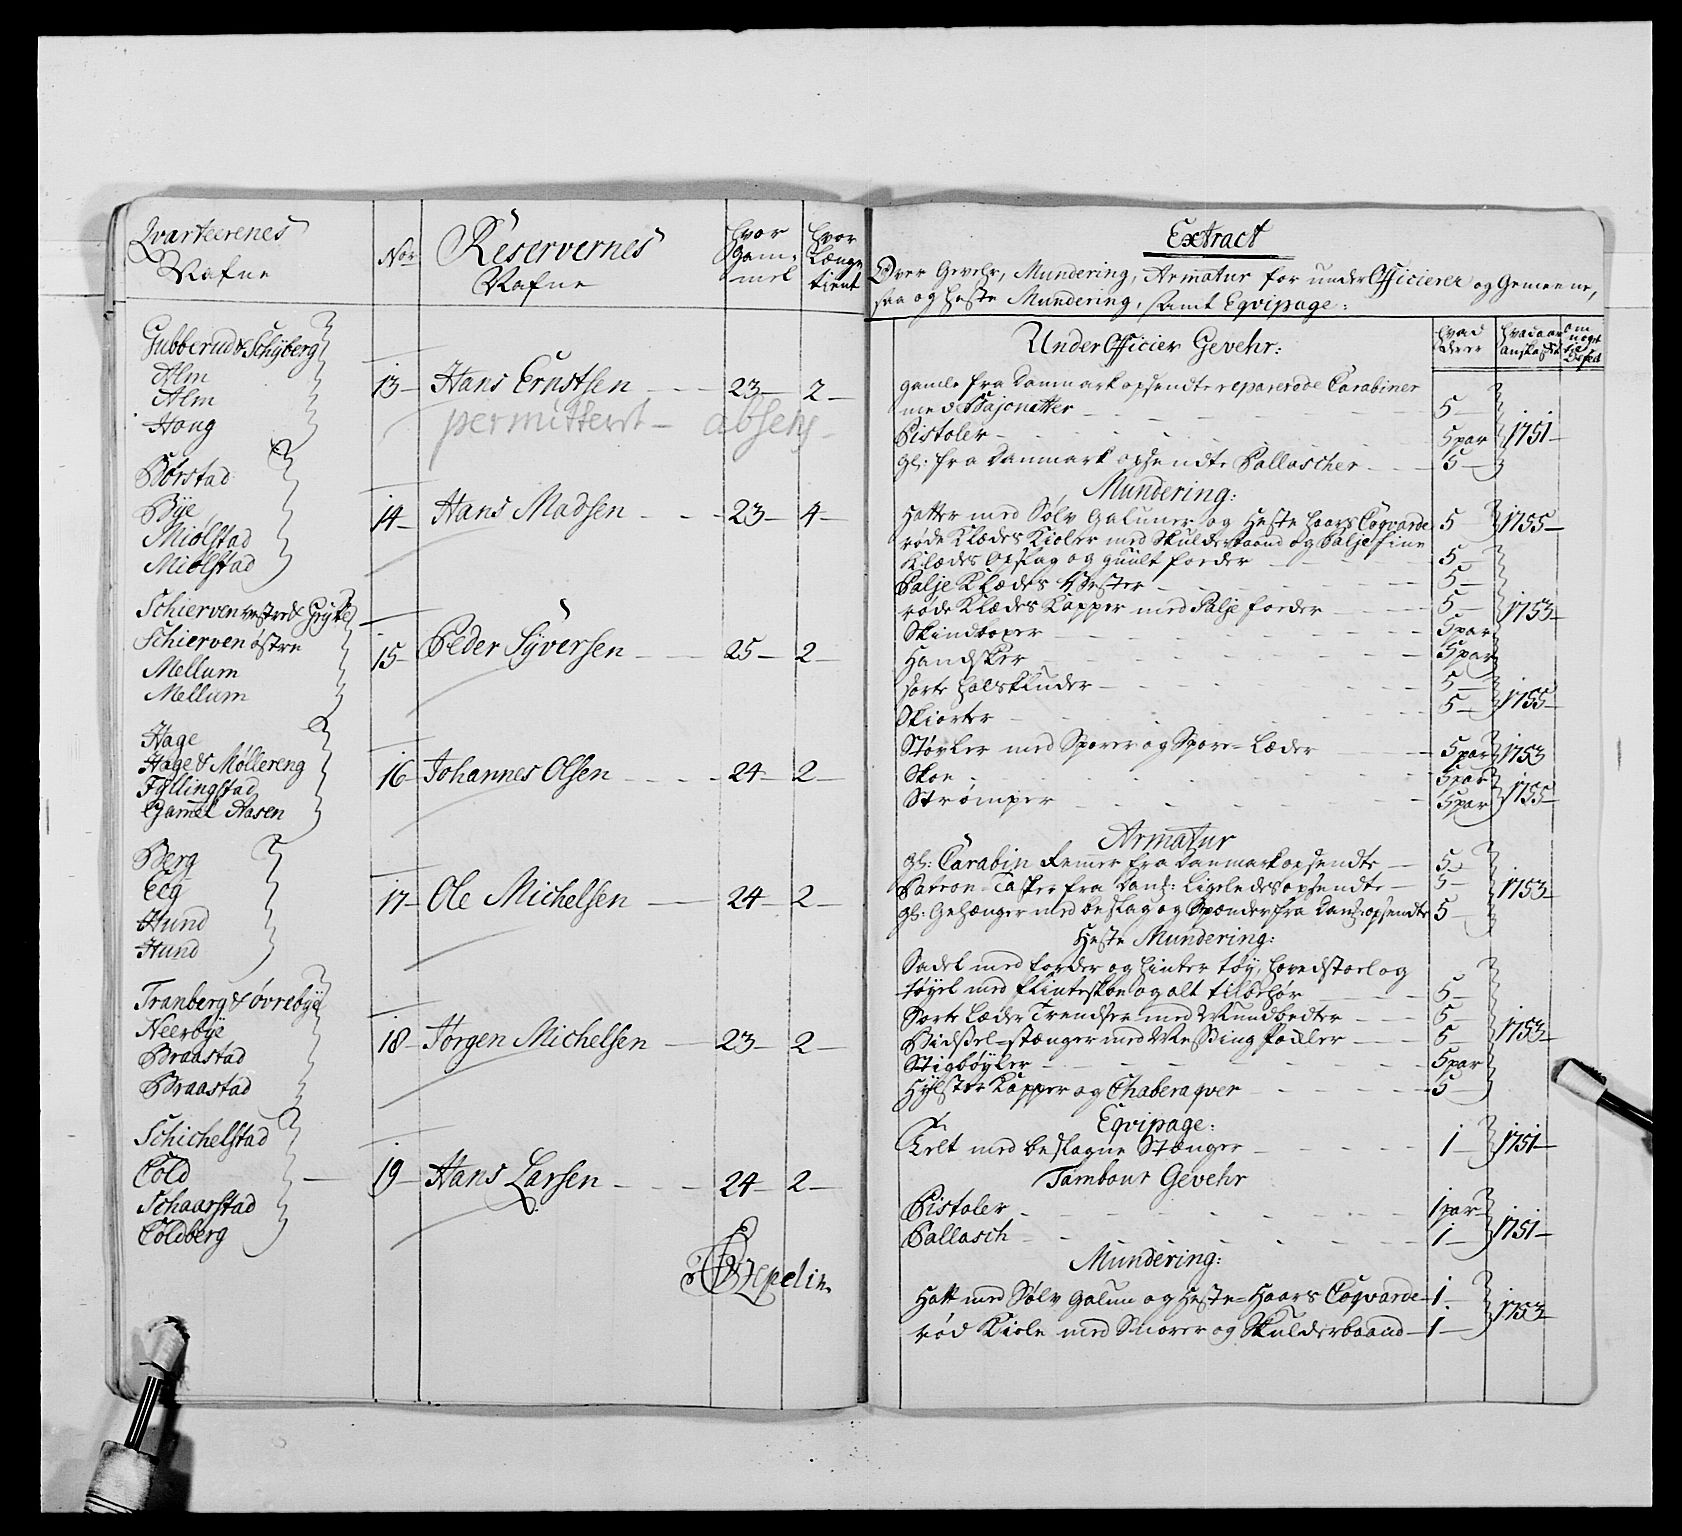 Qvarteerenes
Nafne
No
Reservernes
Nafne
hvor
Gam-
mel
hvor
Længe
tient
Gubberud & Schyberg
Alm
Alm
Houg
13 — Hans Ernstsen — 23 — 2 —
permittert — absens
Børstad
Bye
Miølstad
Miølstad
14 — Hans Madsen — 23 — 4 —
Schierven vestre &
Schierven østre
Mellum
Mellum
15 — Peder Syversen — 25 — 2 —
Hage
Hage & Møllereng
Fyllingstad
Gamel Aasen
16 — Johannes Olsen — 24 — 2 —
Berg
Eeg
Hund
Hund
17 — Ole Michelsen — 24 — 2 —
Tranberg & øvrebye
Neerbye
Braastad
Braastad
18 — Jørgen Michelsen — 23 — 2 —
Schichelstad
Cold
Schaarstad
Coldberg
19 — Hans Larsen — 24 — 2 —
Extract
Over Gewehr, Mundering, Armatur for underOfficierer og Gemeene,
saa og Heste Mundering, samt Eqvipage:
UnderOfficier Gevehr:
hvad
hvad aar
anskaffet
om
noget
gamle fra Danmark opsendte reparerede Carabiner
med Bajonetter — 5 —
Pistoler — 5 par 1751 —
gl: fra Danmark opsendte Pallascher — 5 —
Mundering:
Hatter med Sølv Galuner og Heste Haars Coqvarde 5 1755 —
røde Klædes Kioler med Skulderbaand og Palje fine
Klædes Opslag og guult foeder — 5 —
Palje Klædes Vester — 5 —
røde Klædes Kapper med Palje foeder — 5 — 1753 —
Skindboxer — 5 par
Handsker — 5 par
sorte Halskluder — 5 —
Skiorter — 5 — 1755 —
Støvler med Sporer og Spore-Læder — 5 par 1753
Skoe — 5 par
Strømper — 5 par 1755 —
Armatur
gl: Carabin Remer fra Danmark opsendte — 5 —
Patron-Tasker fra Danm: ligeledes opsendte — 5 — 1753 —
gl: Gehænger med beslag og Spænder fra Danm: opsendte 5
Heste Mundering:
Sadel med forder og hinter tøy, hovedstoel og
tøyel med flinteskoe og alt tilbehør — 5 —
Sorte Læder Trendser med Mundbedter — 5 —
Bidssel-stænger med Messing Pockler — 5 1753 —
Stigbøyler — 5 par
Hylster Kapper og Chaberaqver — 5 —
Eqvipage:
Telt med beslagne Stænger — 1 — 1751 —
Tambour Gevehr
Pistoler — 1 par
Pallasch — 1 — 1751 —
Mundering:
Hatt med Sølv Galun og Heste-Haars Coqvarde — 1 —
rød Kiole med Snorer og Skulderbaand — 1 — 1753 —